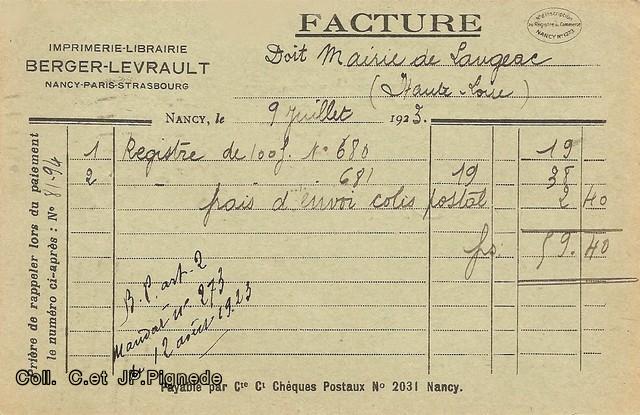 FACTURE
N° d'Inscription
du Registre du Commerce
NANCY N° 1273
IMPRIMERIE-LIBRAIRIE
BERGER-LEVRAULT
NANCY-PARIS-STRASBOURG
Doit Mairie de Langeac
(Haute-Loire)
NANCY, le 9 Juillet 1923.
Prière de rappeler lors du paiement
le numéro ci-après : N° 8194
1 Registre de 100 f. N° 680 19
2 - - 681 19 38
frais d'envoi colis postal 2 40
fs 59.40
B. P. art. 2
Mandat n° 273
12 août 1923
Payable par Cte Ct Chèques Postaux N° 2031 Nancy.
Coll. C.et JP.Pignede